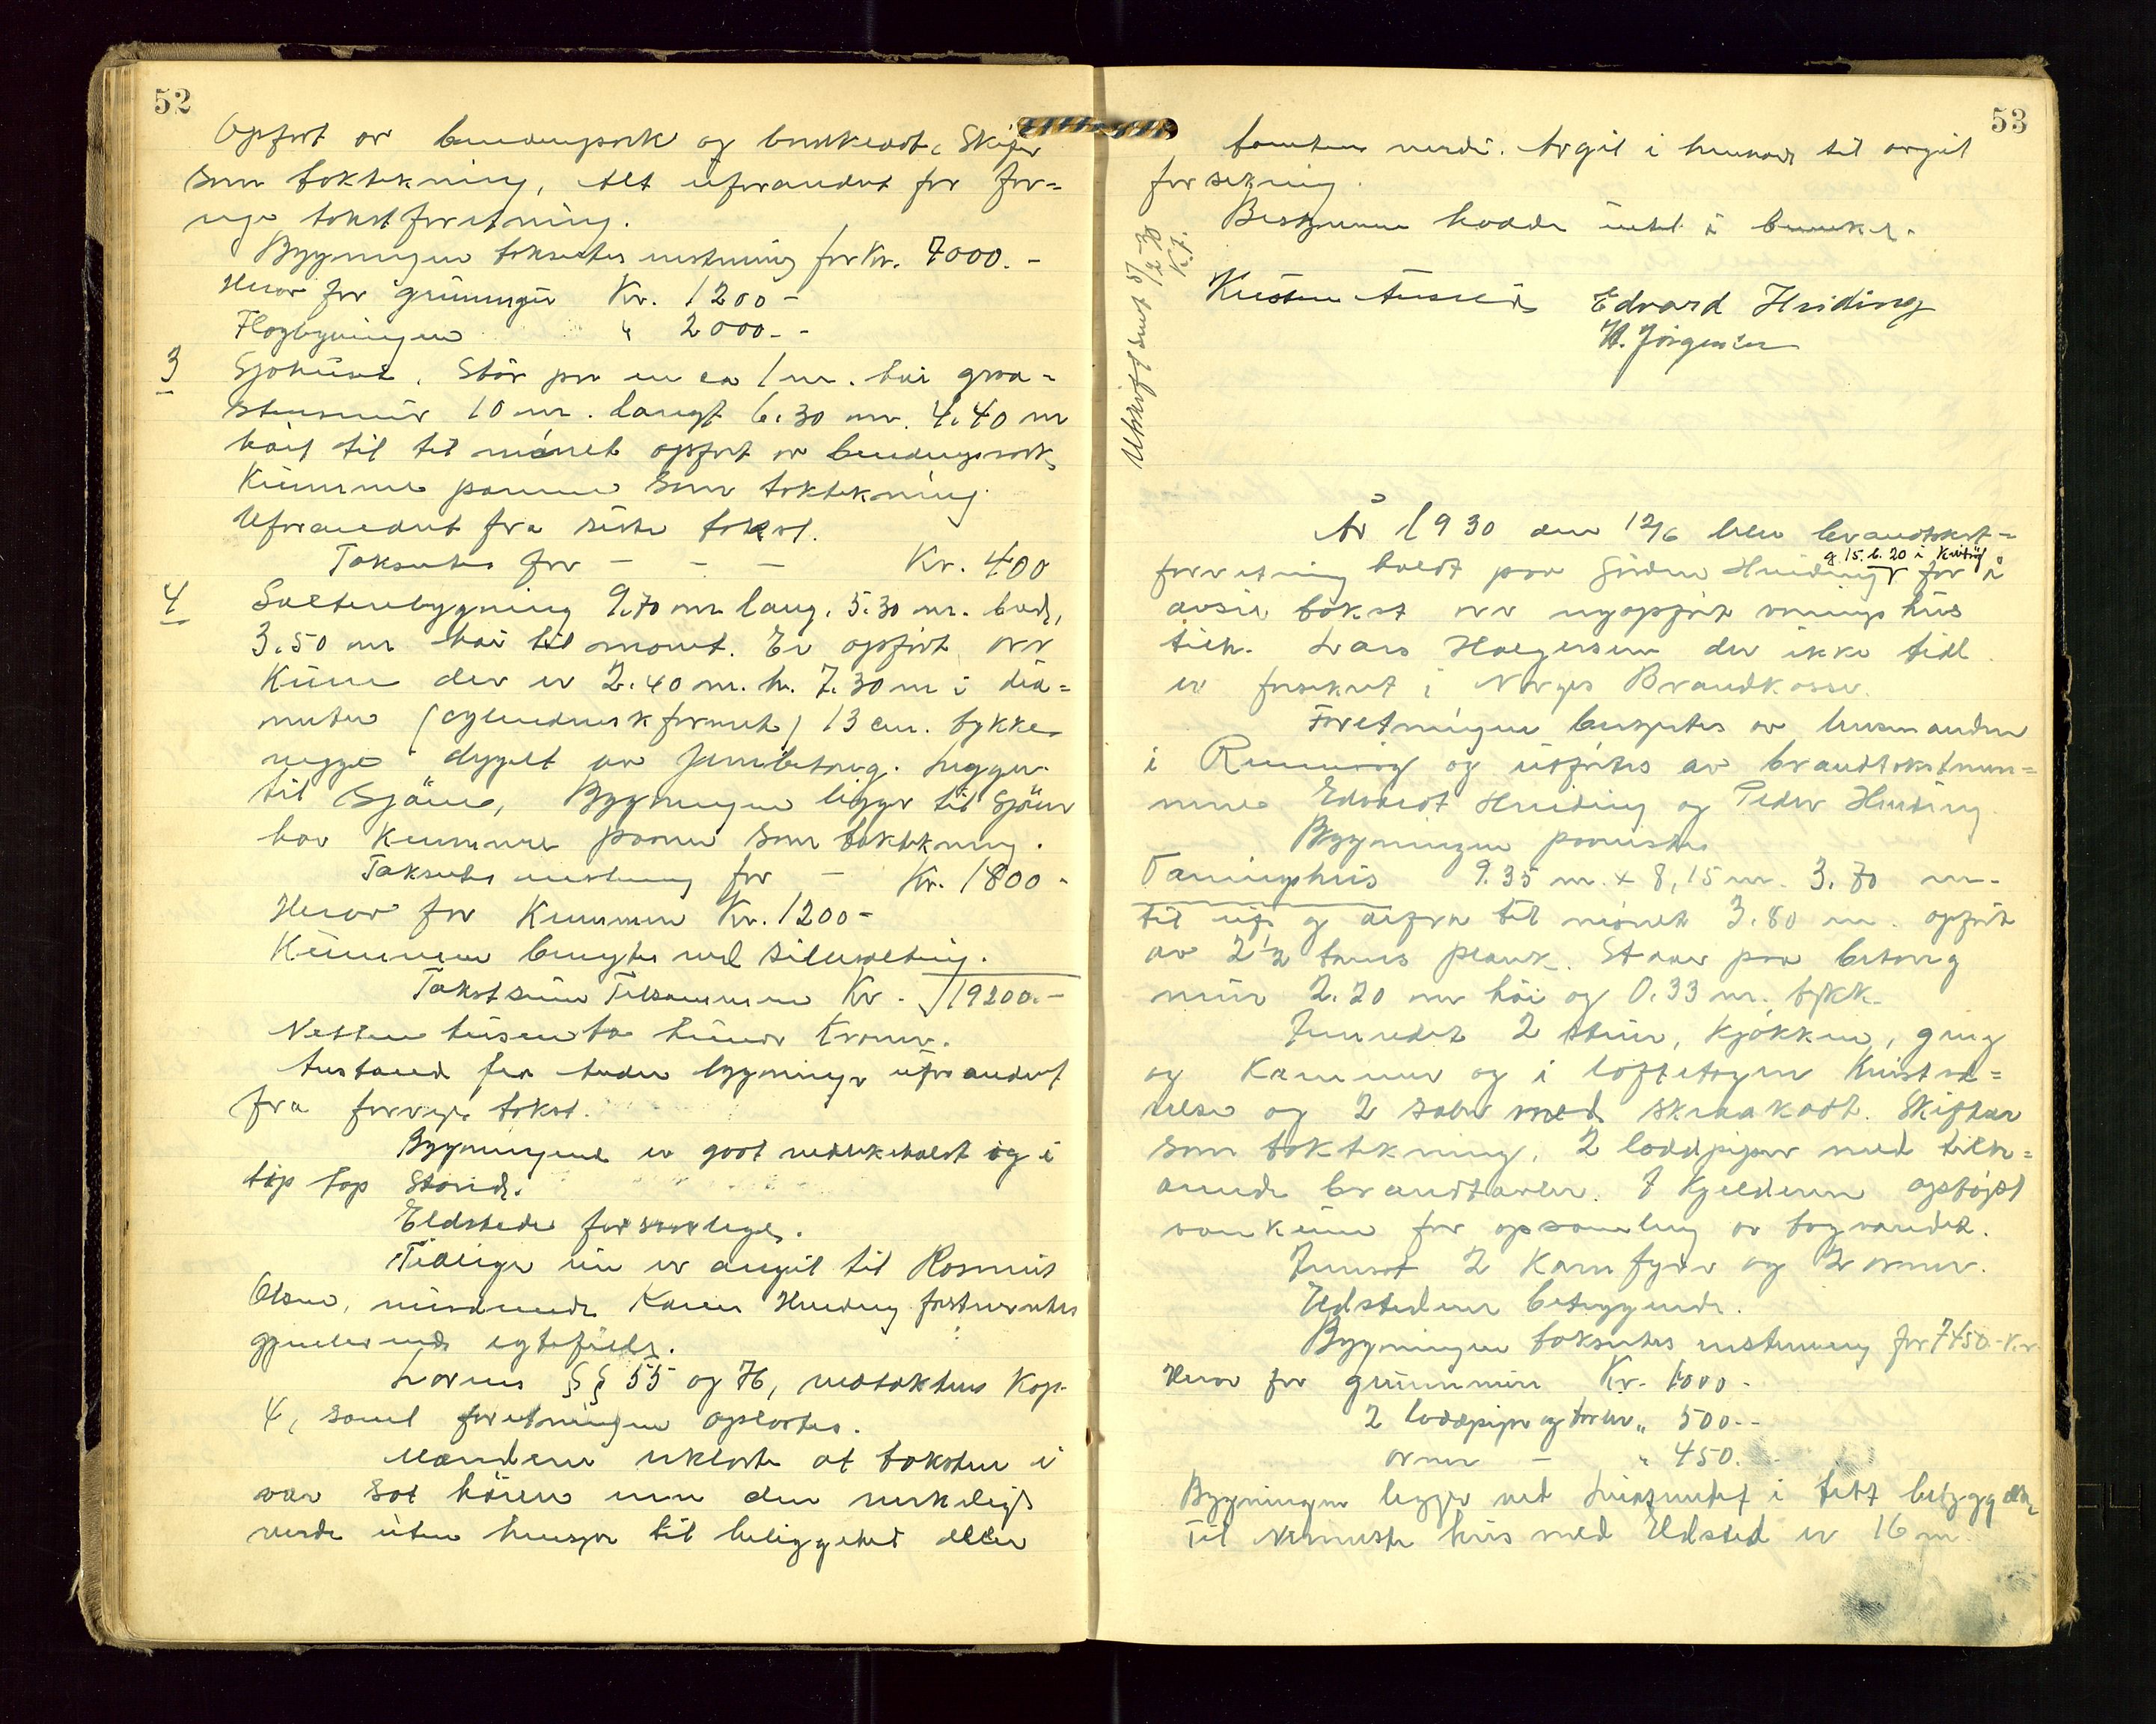 52
Opført av bindingsverk og bordkledt, Skifer
som taktekning, alt uforandret fra for=
rige takstforretning.
Bygningen takseres uestimering for Kr. 7000.-
Herav for grunnmur Kr. 1200-
Fløybygningen " 2000.-
3 Sjøhuset. Står paa en ca 1 m. høi graa=
stensmur 10 m. langt 6.30 m. 4.40 m
høit til til mønet opført av bindingsverk,
panner som taktekning.
Uforandret fra siste takst.
Taksertes for - - - Kr. 400
4 Salteribygning 9.70 m lang, 5.30 m. bred,
3.50 m høi til mønet. Er opført over
Kumme der er 2.40 m. h. 7.30 m i dia=
meter (cylindrisk formet) 13 cm. tykke
vegge av Jernbetong. Ligger
til Sjøen, Bygningen ligger til Sjøen
har panner som taktekning.
Taksertes for - Kr. 1800-
Herav for Kummen Kr. 1200-
Kummen benyttes ved sildsalting.
Takstsum Tilsammen Kr. 19200.-
Nitten tusen to hundre Kroner.
Avstand fra andre bygninger uforandret
fra forrige takst.
Bygningene er godt vedlikeholdt og i
tip top Stand.
Eldsteder forsvarlige.
Tidligere eier er angit til Rasmus
Olsen, nuværende Karen Hviding
gjenlevende egtefælle.
Lovens §§ 55 og 76, vedtektens Kap.
4, samt forretningen oplæstes.
Mændene erklærte at taksten i
var sat høiere enn den virkelige
verdi uten hensyn til beliggenhet eller
53
tomtens verdi. Avgit i henhold til avgit
forsikring.
Bestyreren hadde intet å bemerke.
Utskrift sent 5/12-30 K.J.
Edvard Hviding
H. Jørgensen
År 1930 den 12/6 blev brandtakst=
forretning holdt paa Gården Hviding g. 15. b. 20 i for å
avsi takst over nyopført vånings hus
tilh. Lars Helgersen der ikke tidl.
er forsikret i Norges Brandkasse.
Forretningen bestyrtes av lensmanden
i Rennesøy og utførtes av brandtakstmen=
nene Edvard Hviding og Peder Hviding
Bygningen paavistes
Vaaningshus 9.35 m. x 8,15 m. 3.70 m.
til ups og derfra til mønet 3.80 m. opført
av 2½ toms plank. Staar paa betong
mur 2.20 m høi og 0.33 m. tykk.
Innredet 2 stuer, kjøkken, gang
og Kammer og i loftetagen Kvist væ=
relse og 2 saler med skraakott. Skiffer
som taktekning. 2 loddpiper med tilh=
ørende brandtavler. I Kjelderen opstøpt
vankum for opsamling av tagvandet.
Innsat 2 Komfyrer og 2 ovner.
Eldstedene betryggende.
Bygningen takseres for 7450.- Kr.
Herav for grunnmur Kr. 1000-
2 loddpiper og tavler " 500.-
ovner - " 450.
Bygningen ligger ved i tett bebyggelse
Til nermeste hus med Eldsted er 16 m